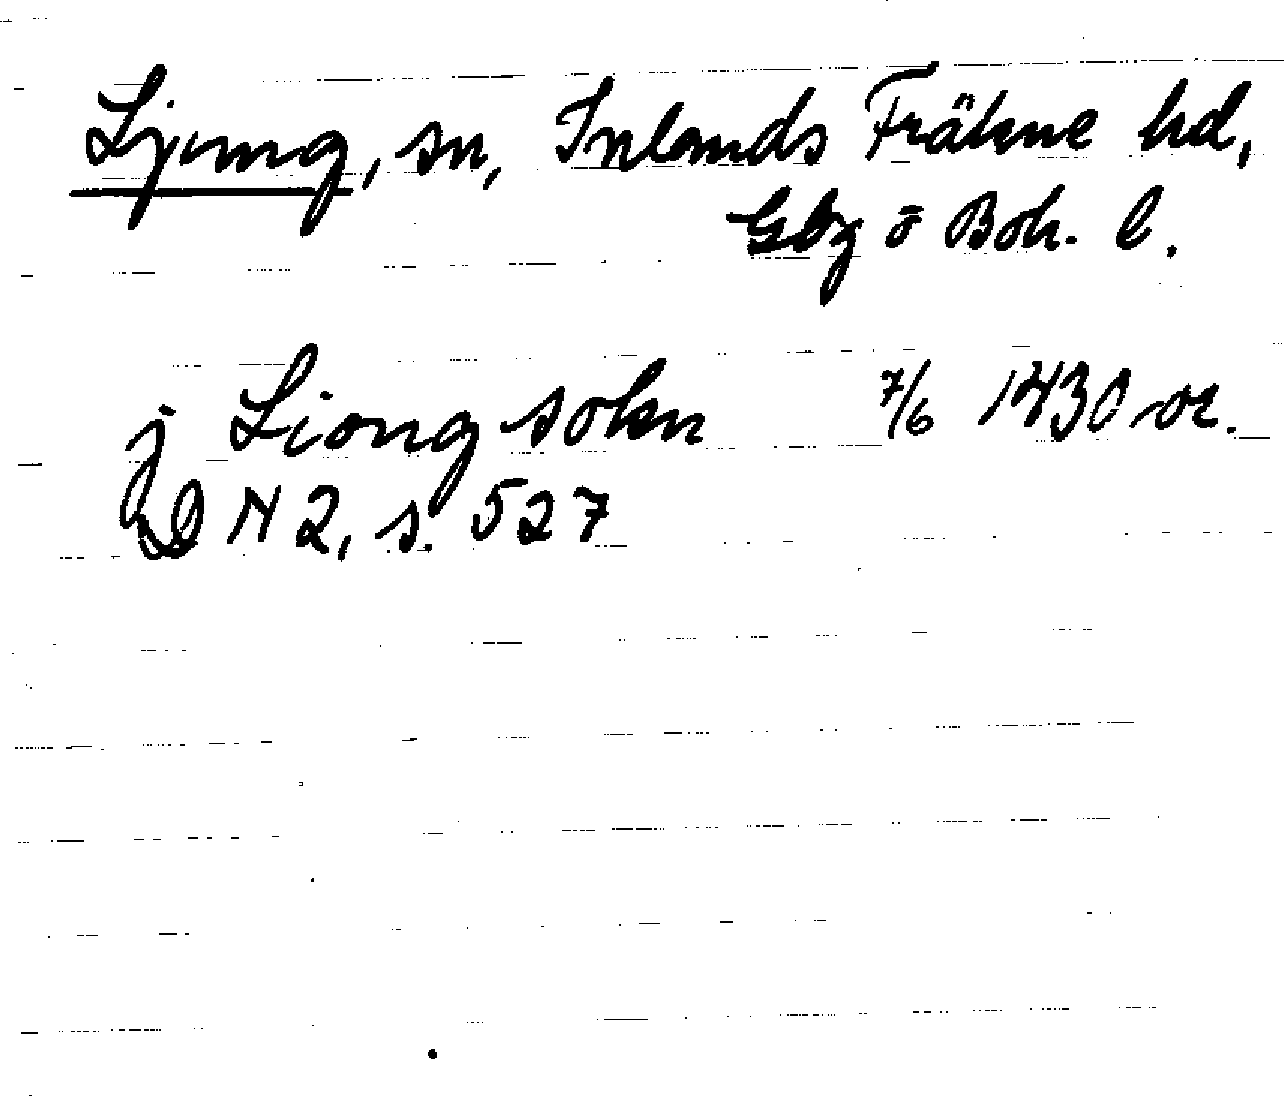 Ljung, sn, Inlands Fräkne hd,
Gbg o Boh. l.
j Liong sokn 7/6 1430 or.
DN 2, s. 527